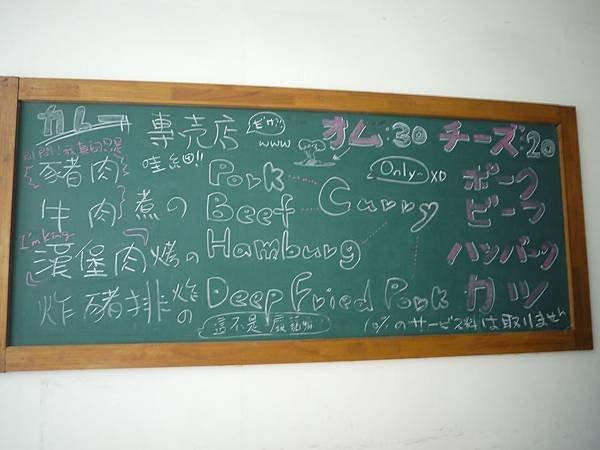 カレー 專売店 ゼヤ!! www オム:30 チーズ:20
哇細囲!!
豬肉 Pork Only~ XD ポーク
牛肉 煮の Beef Curry ビーフ
I'm King
漢堡肉 烤の Hamburg ハンバーグ
炸豬排 炸の Deep Fried Pork カツ
這不是廢話嗎 10%のサービス料は取りません